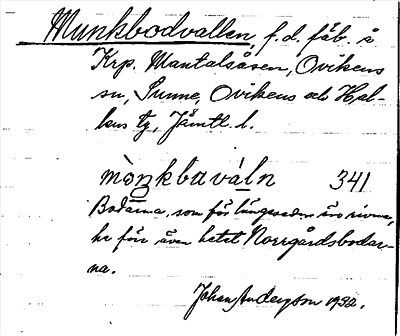 Munkbodvallen, f.d. fäb. i
Krp. Mantalsåsen, Ovikens
sn, Sunne, Ovikens och Hal-
lens tg, Jämtl. l.
mòŋkbaváln 341
Bodarna, som för längesedan äro rivna,
ha förr även hetat Norrgårdsbodar-
na.
Johan Anderson 1932.